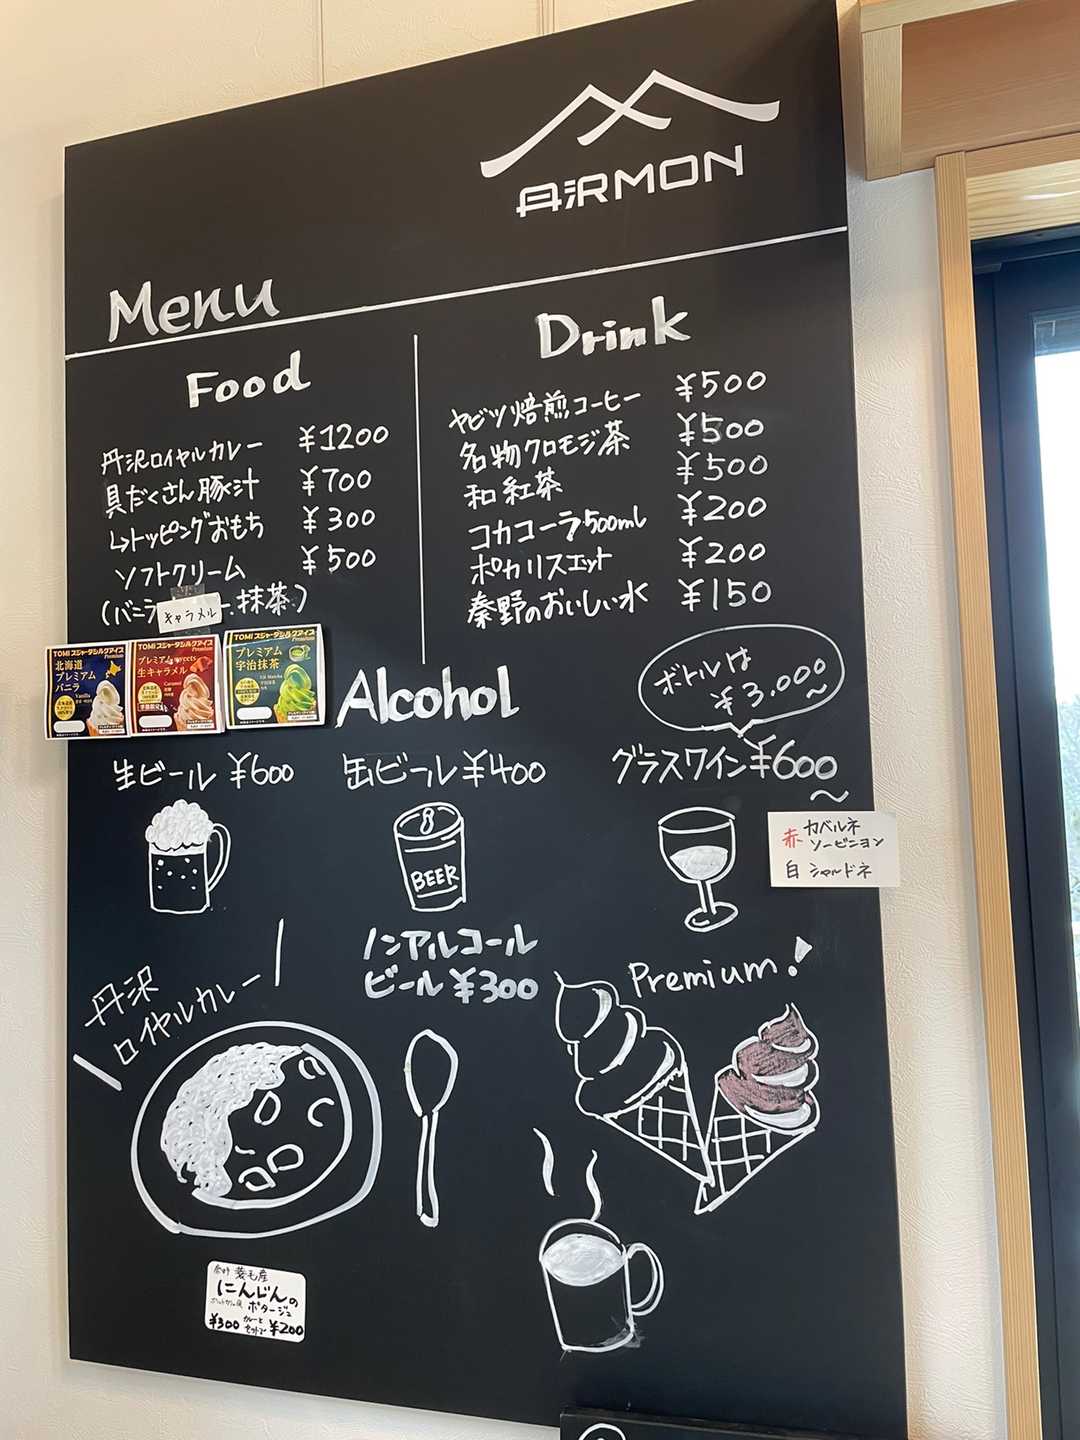 丹沢MON
Menu
Food
丹沢ロイヤルカレー ¥1200
具だくさん豚汁 ¥700
↳トッピングおもち ¥300
ソフトクリーム ¥500
(バニラ キャラメル 抹茶)
TOMI スジャータシルクアイス
Premium
北海道
プレミアム
バニラ
Vanilla
TOMI スジャータシルクアイス
Premium
プレミアム sweets
生キャラメル
Caramel
TOMI スジャータシルクアイス
Premium
プレミアム
宇治抹茶
Uji Matcha
Drink
ヤビツ焙煎コーヒー ¥500
名物クロモジ茶 ¥500
和紅茶 ¥500
コカコーラ500ml ¥200
ポカリスエット ¥200
秦野のおいしい水 ¥150
Alcohol
ボトルは
¥3.000〜
生ビール ¥600
缶ビール ¥400
グラスワイン ¥600〜
BEER
赤 カベルネ
ソービニヨン
白 シャルドネ
ノンアルコール
ビール ¥300
丹沢
ロイヤルカレー
Premium!
菱毛産
にんじんの
ポタージュ
¥300 カレーと
セットで ¥200